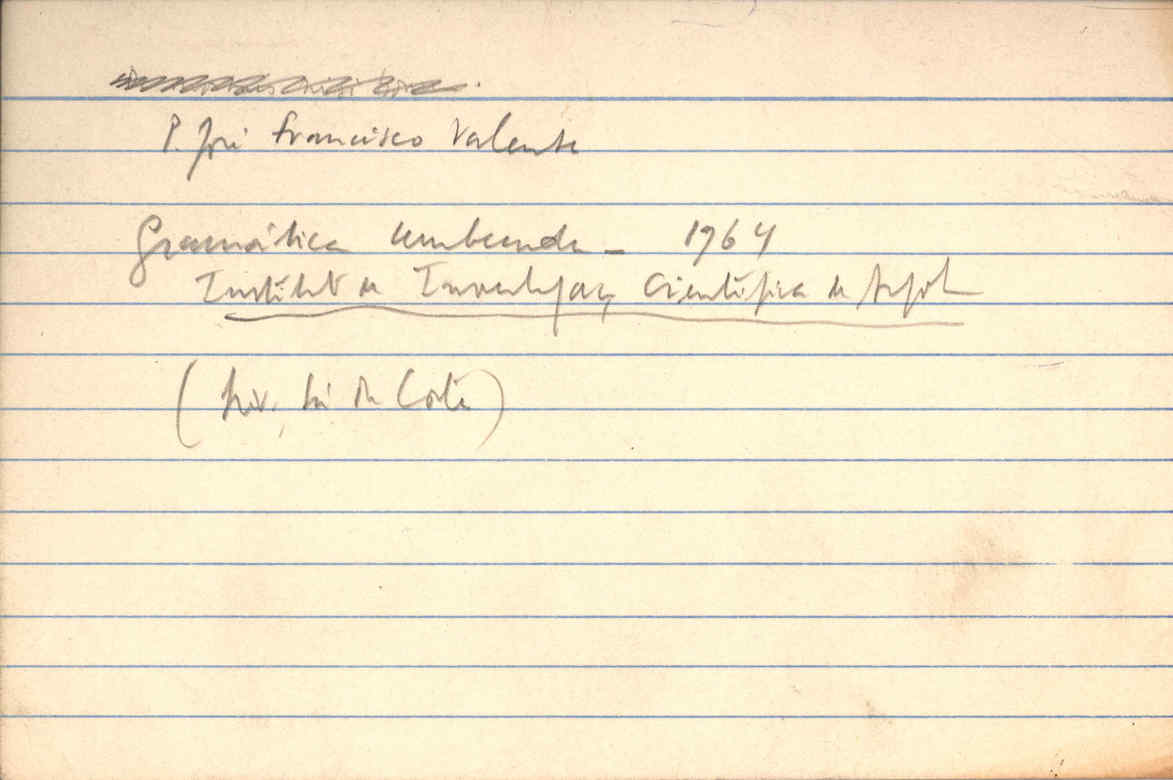 P. José Francisco Valente
Gramática umbunda – 1964
Instituto de Investigação Científica de Angola
( Liv. Sá da Costa )